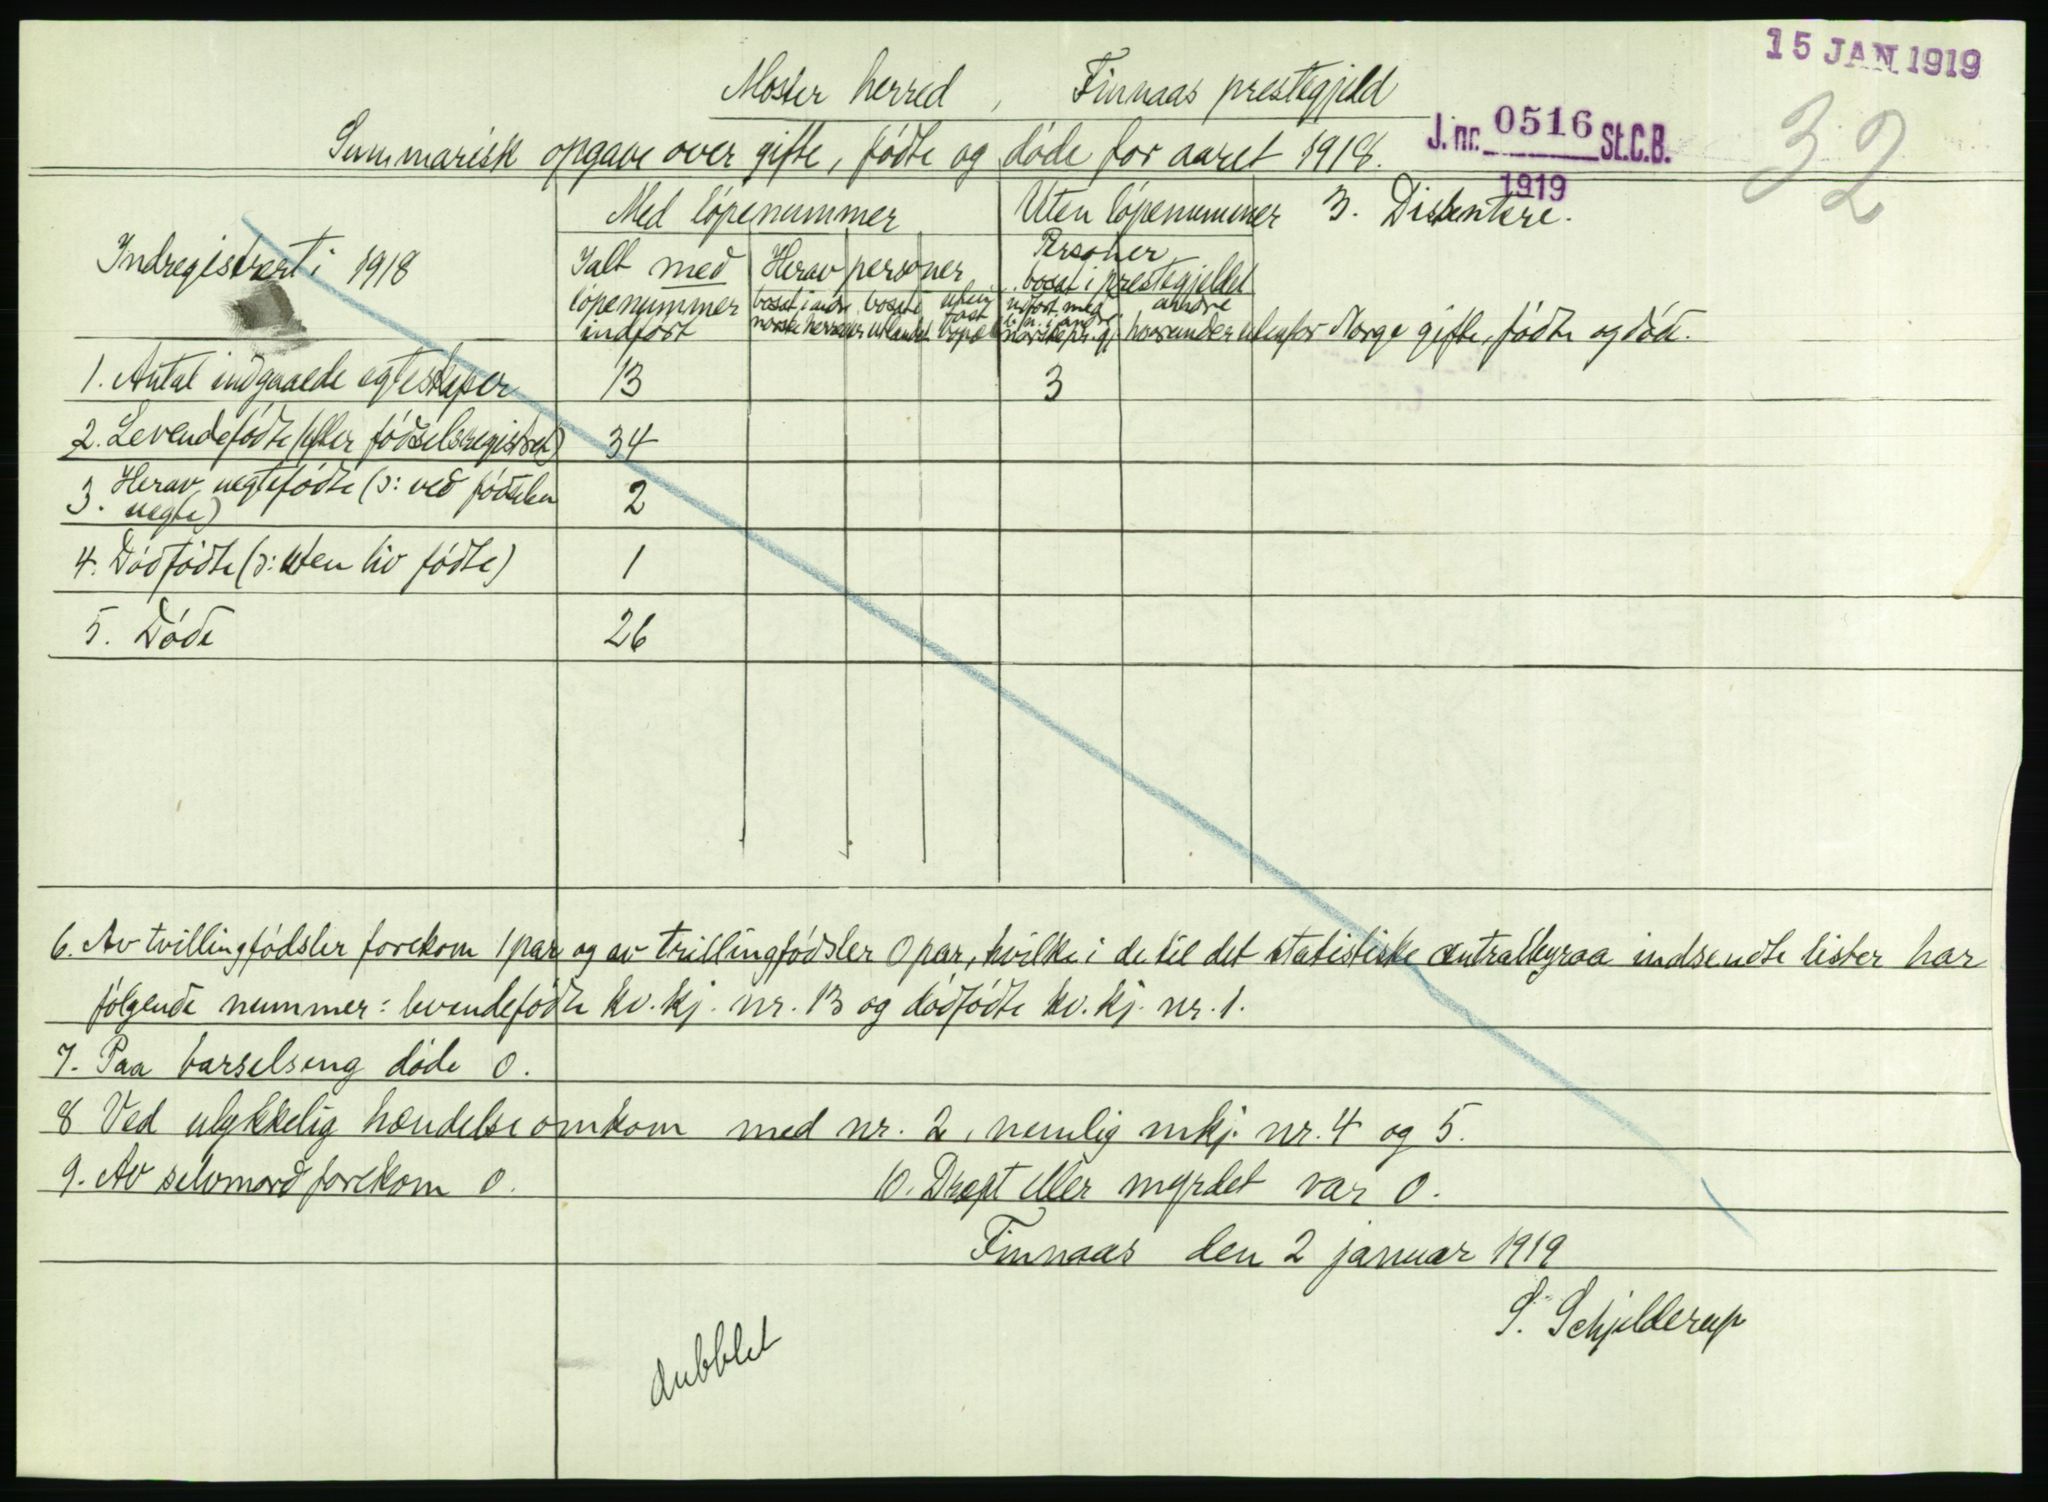 15 JAN 1919
Moster herred, Finnaas prestegjeld
32
J. nr. 0516 St.C.B.
1919
Summarisk opgave over gifte, fødte og døde for aaret 1918.
Med løpenummer
Uten løpenummer
3. Disentere.
Indregistrert i 1918
Ialt med løpenummer indført
Herav personer
bosat i andre norske herreder
bosat i utlandet
uten fast bopæl
Personer bosat i prestegjeldet
indført med l. nr. i andre norske pr.gj.
andre
hvorunder utenfor Norge gifte, fødte og døde.
1. Antal indgaaede egteskaper 13 3
2. Levendefødte (efter fødselsregistret) 34
3. Herav uegtefødte (ɔ: ved fødselen uegte) 2
4. Dødfødte (ɔ: uten liv fødte) 1
5. Døde 26
6. Av tvillingfødsler forekom 1 par og av trillingfødsler 0 par, hvilke i de til det statistiske centralbyraa indsendte lister har
følgende nummer: levendefødte kv. kj. nr. 13 og dødfødte kv. kj. nr. 1.
7. Paa barselseng døde 0.
8 Ved ulykkelig hændelse omkom med nr. 2, nemlig mkj. nr. 4 og 5.
9. Av selvmord forekom 0. 10. Dræpt eller myrdet var 0.
Finnaas den 2 januar 1919
S. Schjelderup
dubblet